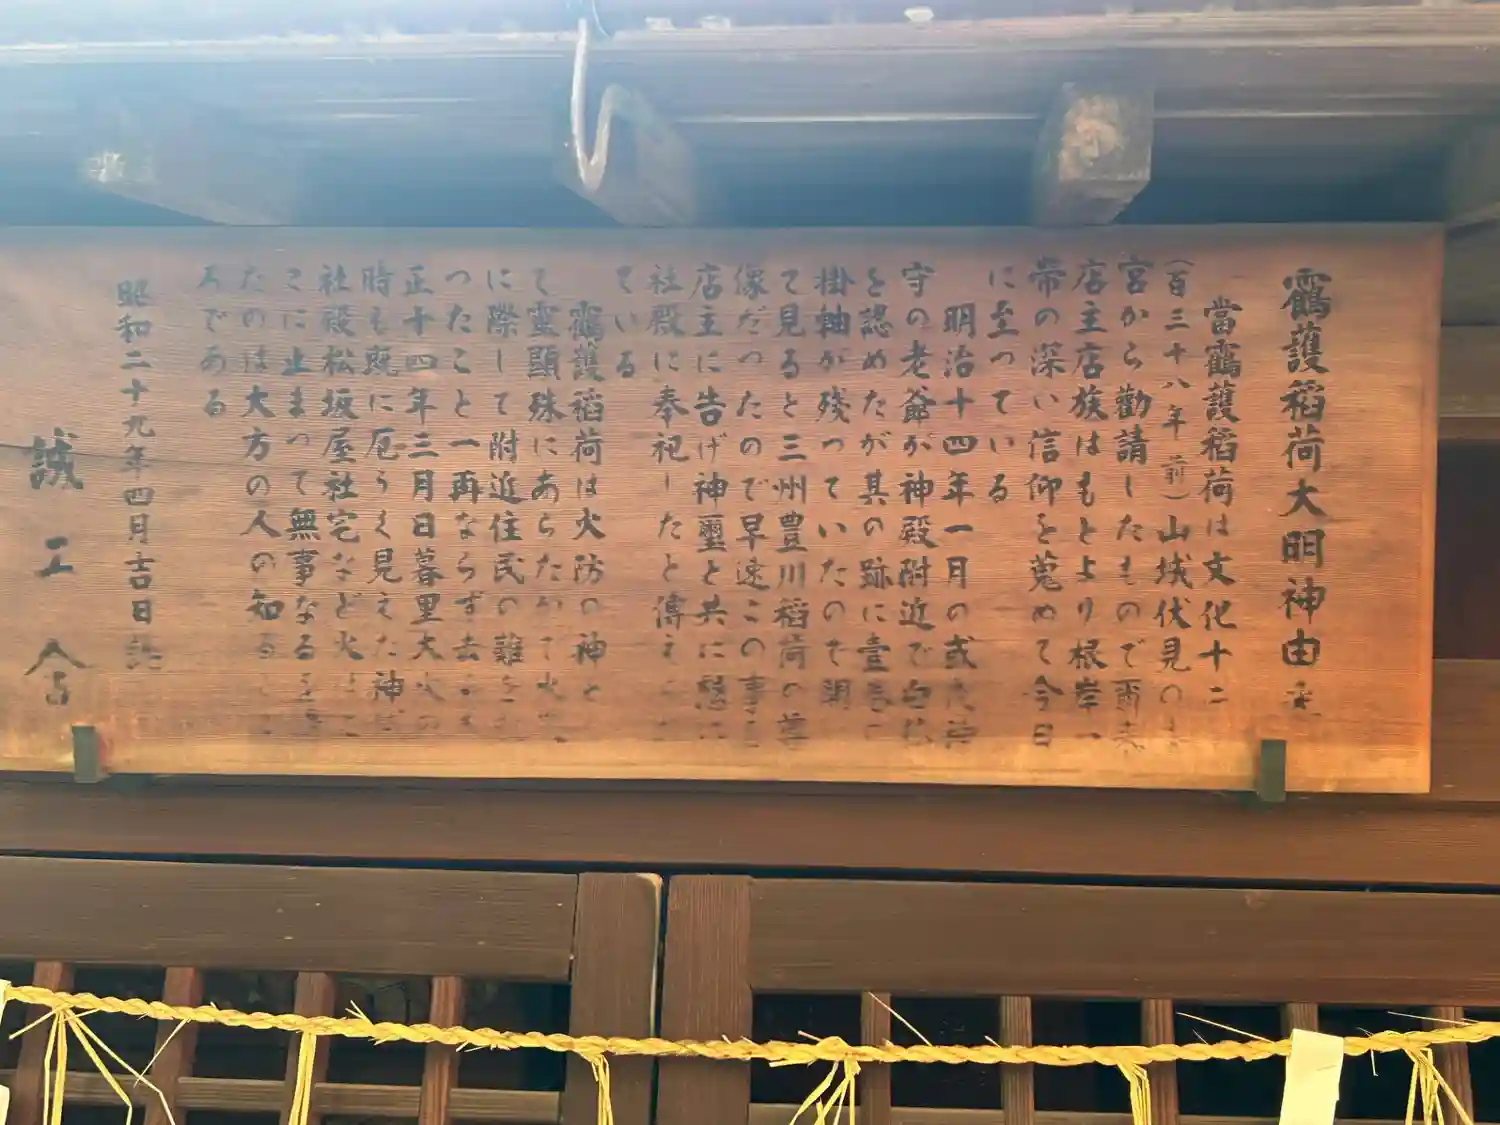 靏護稲荷大明神由
當靏護稲荷は文化十二
(百三十八年前)山城伏見の
宮から勸請したもので爾来
店主店族はもとより根岸一
帯の深い信仰を蒐めて今日
に至っている
明治十四年一月の或
守の老爺が神殿附近で白
を認めたが其の跡に壹
掛軸が残っていたので開
て見ると三州豊川稲荷の尊
像だったので早速この事
店主に告げ神璽と共に
社殿に奉祀したと傳
ている
靏護稲荷は火防の神と
て靈顯殊にあらたかで火
に際して附近住民の難を
ったこと一再ならず去
正十四年三月日暮里大火の
時も既に厄うく見えた神
社殿松坂屋社宅など火
こに止まって無事なる
たのは大方の人の知る
ろである
昭和二十九年四月吉日
誠工舎